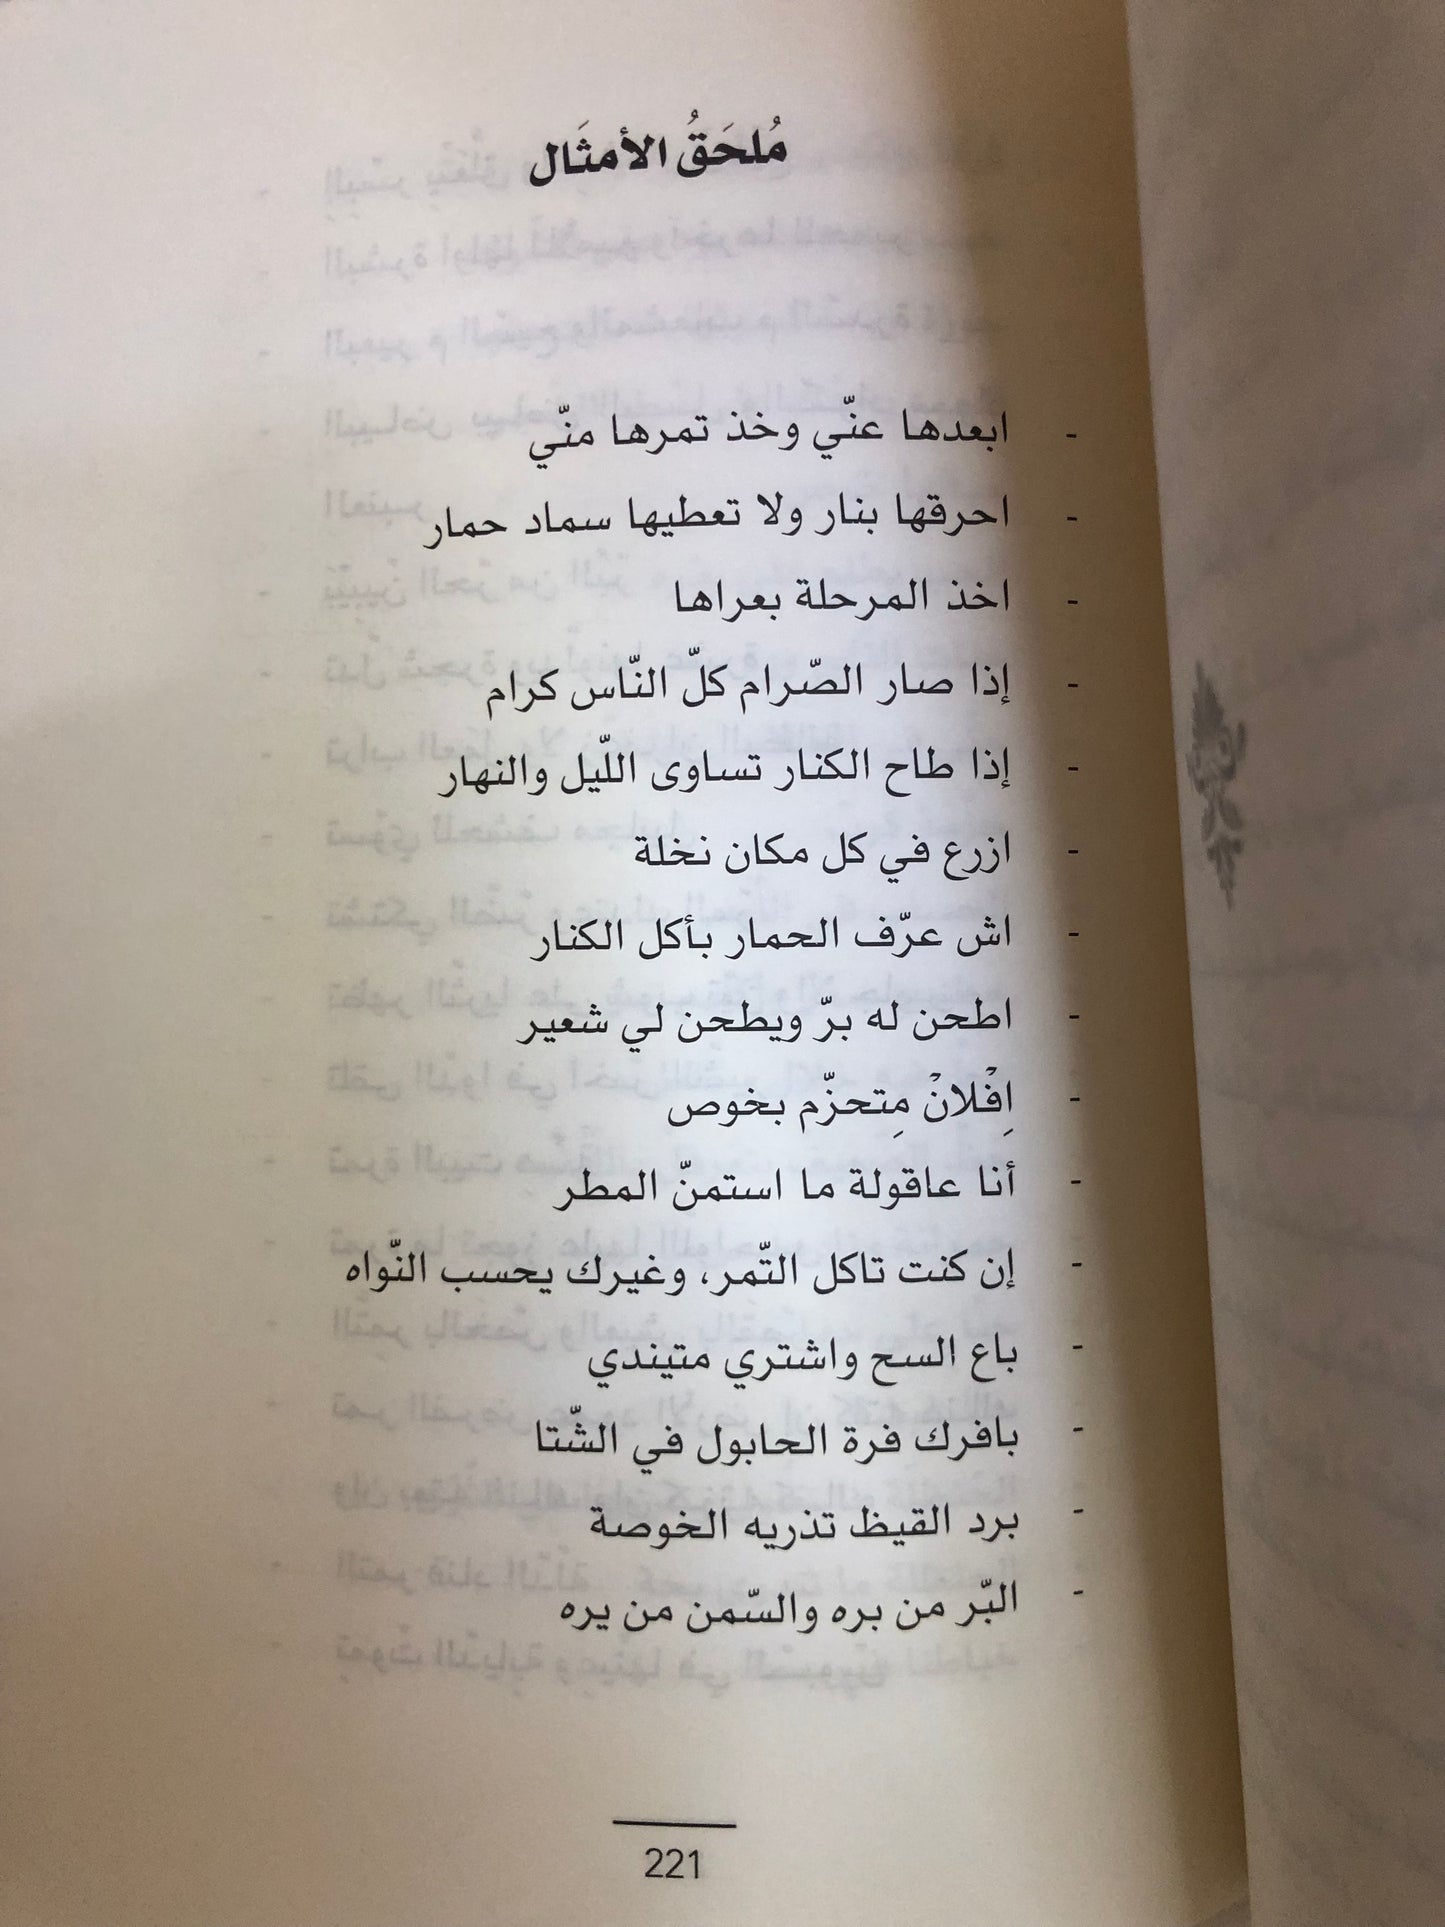 مُلحَقُ الأمثَال
- ابعدها عنّي وخذ تمرها منّي
- احرقها بنار ولا تعطيها سماد حمار
- اخذ المرحلة بعراها
- إذا صار الصّرام كلّ النّاس كرام
- إذا طاح الكنار تساوى اللّيل والنهار
- ازرع في كل مكان نخلة
- اش عرّف الحمار بأكل الكنار
- اطحن له برّ ويطحن لي شعير
- اِفْلانْ مِتحزّم بخوص
- أنا عاقولة ما استمنّ المطر
- إن كنت تاكل التّمر، وغيرك يحسب النّواه
- باع السح واشتري متيندي
- بافرك فرة الحابول في الشّتا
- برد القيظ تذريه الخوصة
- البّر من بره والسّمن من يره
221